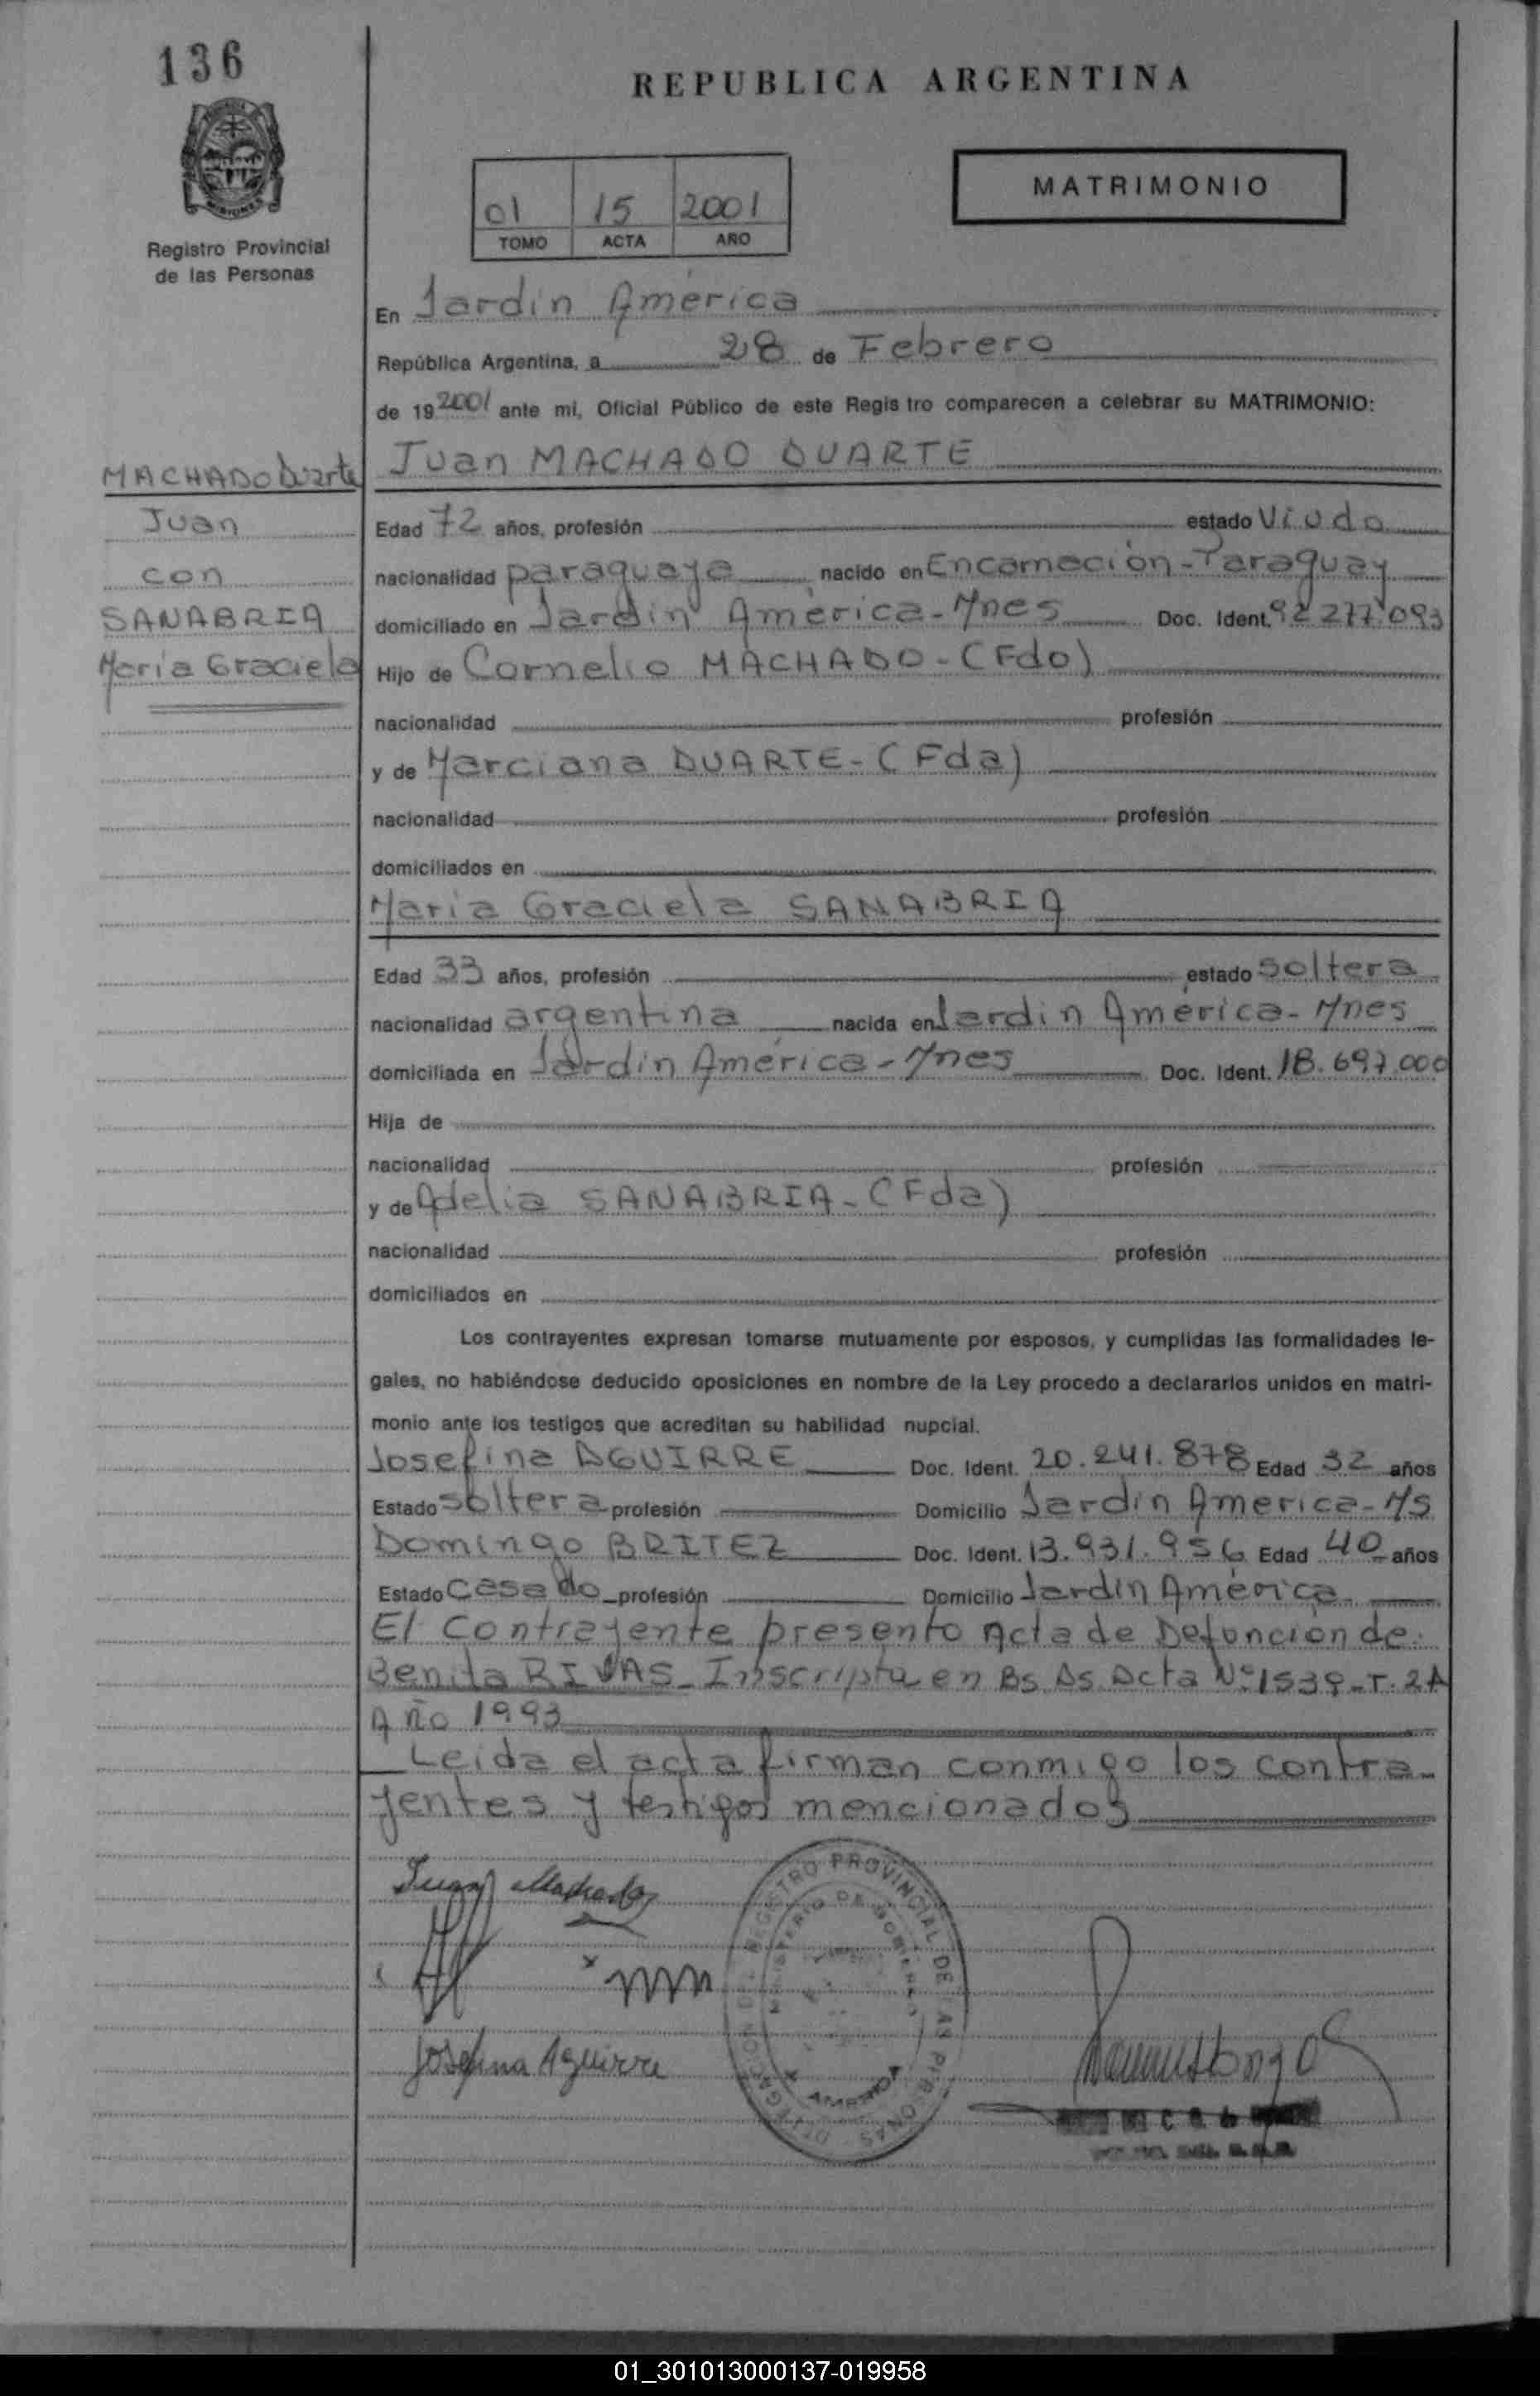 136
REPUBLICA ARGENTINA
MISIONES
Registro Provincial
de las Personas
01 15 2001
TOMO ACTA AÑO
MATRIMONIO
En Jardín América
República Argentina, a 28 de Febrero
de 19 2001 ante mi, Oficial Público de este Regis tro comparecen a celebrar su MATRIMONIO:
MACHADO Duarte
Juan
con
SANABRIA
María Graciela
Juan MACHADO DUARTE
Edad 72 años, profesión estado Viudo
nacionalidad paraguaya nacido en Encarnación - Paraguay
domiciliado en Jardín América - Mnes Doc. Ident. 92 277.093
Hijo de Cornelio MACHADO - (Fdo)
nacionalidad profesión
y de Marciana DUARTE - (Fda)
nacionalidad profesión
domiciliados en
María Graciela SANABRIA
Edad 33 años, profesión estado soltera
nacionalidad argentina nacida en Jardín América - Mnes
domiciliada en Jardín América - Mnes Doc. Ident. 18.697.000
Hija de
nacionalidad profesión
y de Adelia SANABRIA - (Fda)
nacionalidad profesión
domiciliados en
Los contrayentes expresan tomarse mutuamente por esposos, y cumplidas las formalidades le-
gales, no habiéndose deducido oposiciones en nombre de la Ley procedo a declararlos unidos en matri-
monio ante los testigos que acreditan su habilidad nupcial.
Josefina AGUIRRE Doc. Ident. 20.241.878 Edad 32 años
Estado soltera profesión Domicilio Jardín America - Ms
Domingo BRITEZ Doc. Ident. 13.931.956 Edad 40 años
Estado casado profesión Domicilio Jardín América
El Contrayente presento Acta de Defunción de
Benita RIVAS - Inscripta en Bs As Acta Nº 1539 - T. 2A
Año 1993
Leida el acta firman conmigo los contra-
yentes y testigos mencionados
Juan Machado
Josefina Aguirre
REGISTRO PROVINCIAL DE LAS PERSONAS
MINISTERIO DE GOBIERNO
01_301013000137-019958